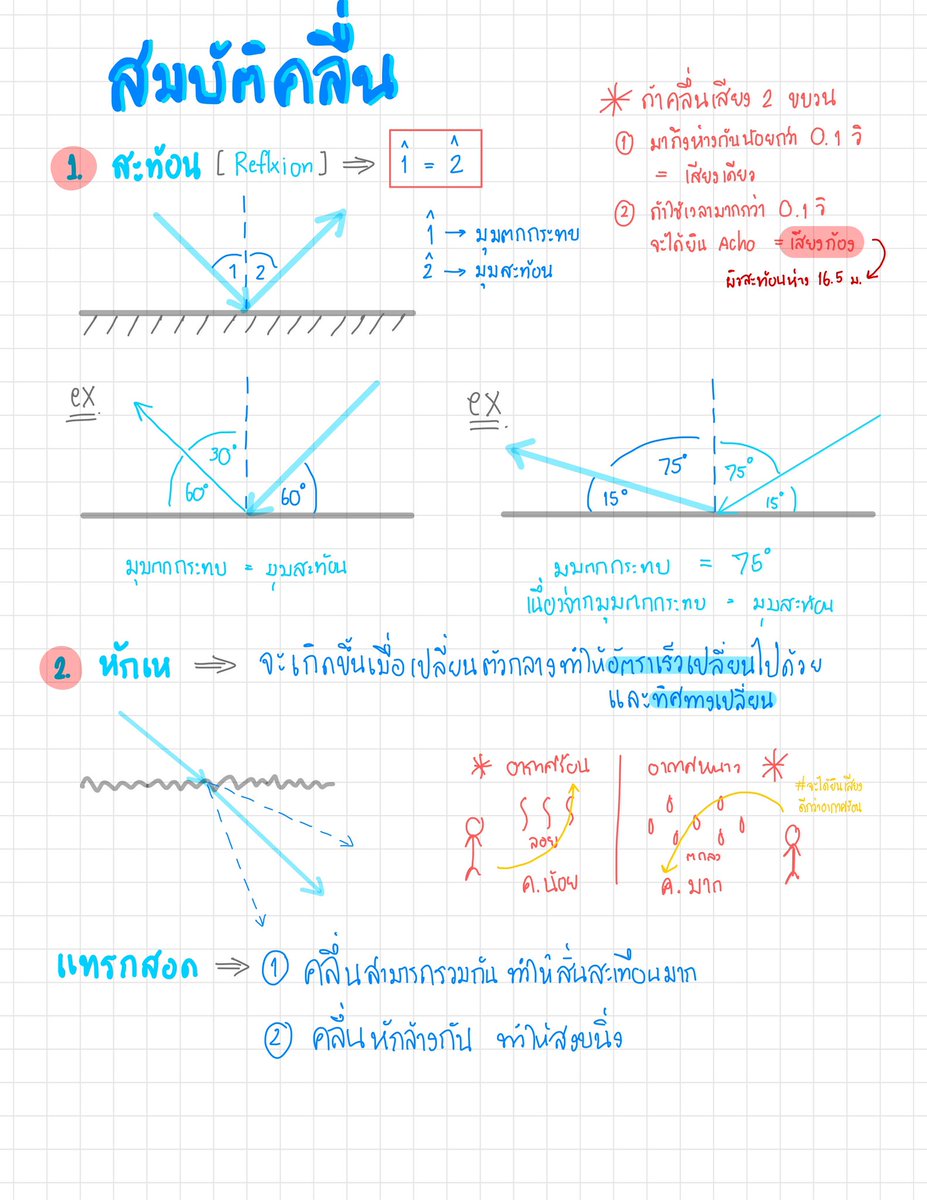 สมบัติคลื่น
1. สะท้อน [Reflxion] ⇒ 1̂ = 2̂
1 2
1̂ → มุมตกกระทบ
2̂ → มุมสะท้อน
* ถ้าคลื่นเสียง 2 ขบวน
① มาถึงห่างกันน้อยกว่า 0.1 วิ
= เสียงเดียว
② ถ้าใช้เวลามากกว่า 0.1 วิ
จะได้ยิน Acho = เสียงก้อง
ผิวสะท้อนห่าง 16.5 ม.
ex.
30°
60° 60°
มุมตกกระทบ = มุมสะท้อน
ex.
75° 75°
15° 15°
มุมตกกระทบ = 75°
เนื่องจากมุมตกกระทบ = มุมสะท้อน
2. หักเห ⇒ จะเกิดขึ้นเมื่อเปลี่ยนตัวกลางทำให้อัตราเร็วเปลี่ยนไปด้วย
และทิศทางเปลี่ยน
* อากาศร้อน
ลอย
ค.น้อย
อากาศหนาว *
#จะได้ยินเสียง
ดีกว่าอากาศร้อน
ตกลง
ค.มาก
แทรกสอด ⇒ ① คลื่นสามารถรวมกัน ทำให้สั่นสะเทือนมาก
② คลื่นหักล้างกัน ทำให้สงบนิ่ง